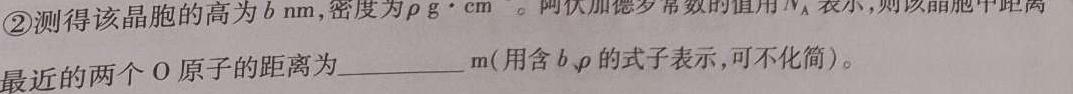 ②测得该晶胞的高为b nm,密度为ρ g·cm⁻。阿伏加德罗常数的值用N_A表示,则该晶胞中距离
最近的两个O原子的距离为________m(用含b、ρ的式子表示,可不化简)。